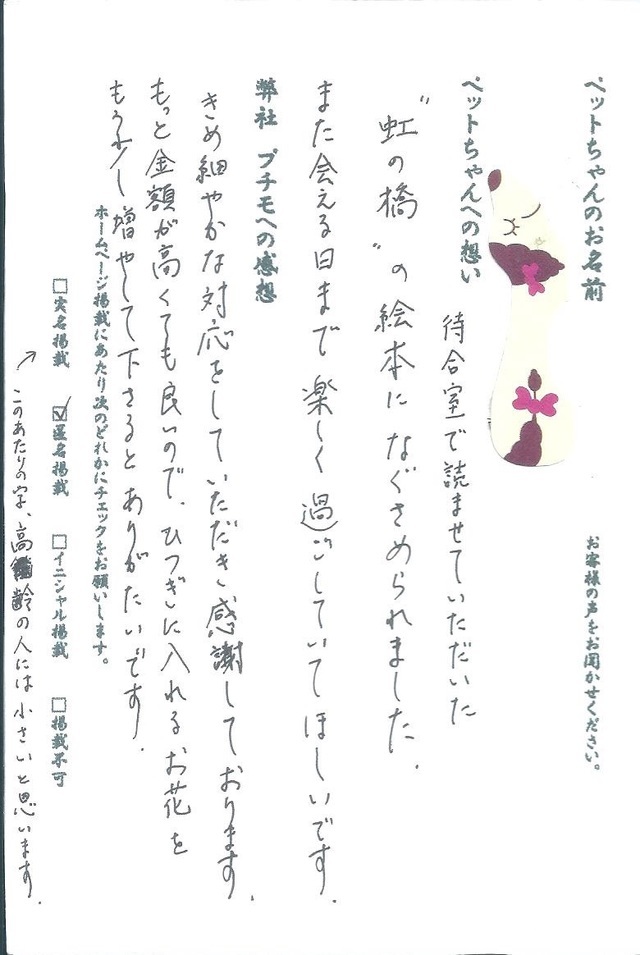 ペットちゃんのお名前
お客様の声をお聞かせください。
ペットちゃんへの想い
待合室で読ませていただいた
"虹の橋"の絵本になぐさめられました.
また会える日まで楽しく過ごしていてほしいです.
弊社 プチモへの感想
きめ細やかな対応をしていただき感謝しております.
もっと金額が高くても良いので、ひつぎに入れるお花を
もう少し増やして下さるとありがたいです.
ホームページ掲載にあたり次のどれかにチェックをお願いします。
□実名掲載 ☑匿名掲載 □イニシャル掲載 □掲載不可
↗このあたりの字、高齢の人には小さいと思います.